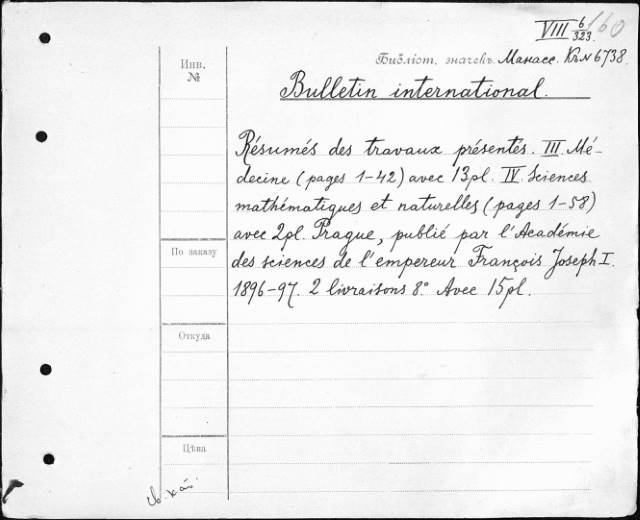 VIII 6/323. 160
Библіот. значекъ. Манасс. Къ № 6738.
Инв.
№
Bulletin international.
Résumés des travaux présentés. III. Mé-
decine (pages 1-42) avec 13 pl. IV. Sciences
mathématiques et naturelles (pages 1-58)
avec 2 pl. Prague, publié par l'Académie
des sciences de l'empereur François Joseph I.
1896-97. 2 livraisons 8.° Avec 15 pl.
По заказу
Откуда
Цѣна